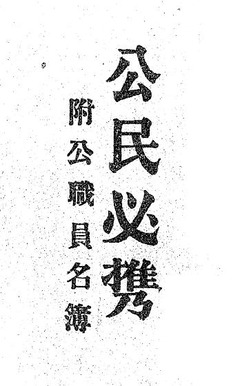 公民必携
附公職員名簿